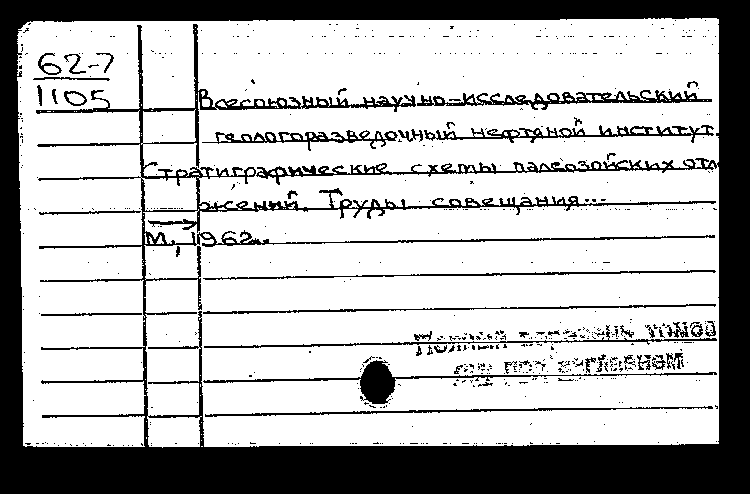 62-7
1105
Всесоюзный научно-исследовательский
геологоразведочный нефтяной институт.
Стратиграфические схемы палеозойских отло
жений. Труды совещания...
М., 1962.
Полный перечень томов
см. под заглавием